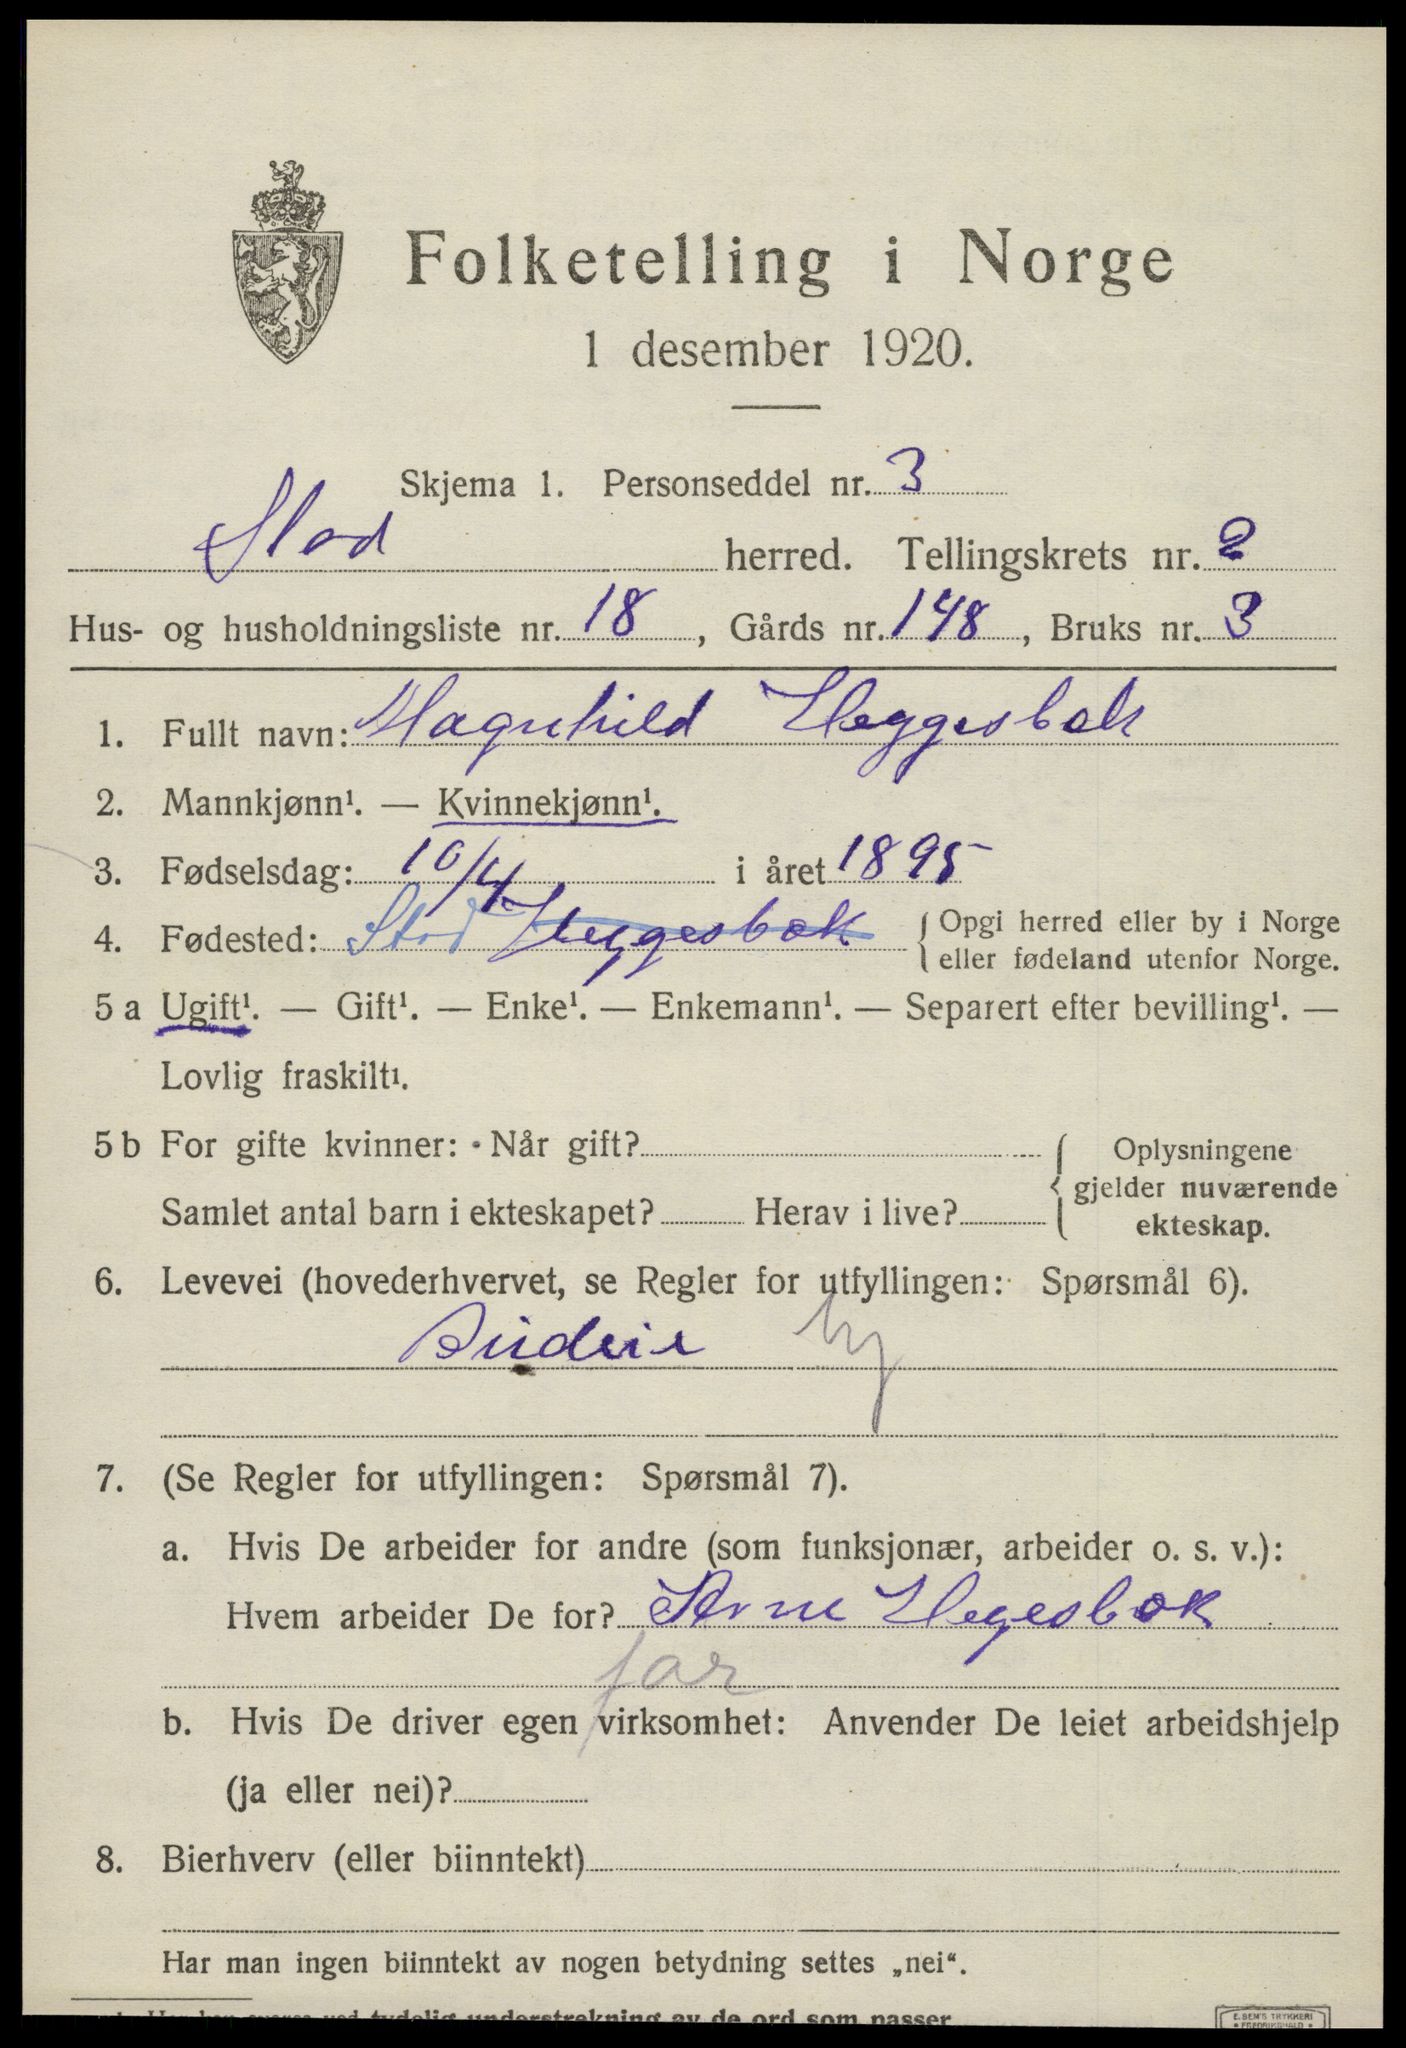 Folketelling i Norge
1 desember 1920.
Skjema 1. Personseddel nr. 3
Stod herred. Tellingskrets nr. 2
Hus- og husholdningsliste nr. 18, Gårds nr. 148, Bruks nr. 3
1. Fullt navn: Magnhild Heggesbok
2. Mannkjønn¹. — Kvinnekjønn¹.
3. Fødselsdag: 10/4 i året 1895
4. Fødested: Stod Heggesbok { Opgi herred eller by i Norge
eller fødeland utenfor Norge.
5 a Ugift¹. — Gift¹. — Enke¹. — Enkemann¹. — Separert efter bevilling¹. —
Lovlig fraskilt¹.
5 b For gifte kvinner: Når gift? { Oplysningene
gjelder nuværende
Samlet antal barn i ekteskapet? Herav i live?
ekteskap.
6. Levevei (hovederhvervet, se Regler for utfyllingen: Spørsmål 6).
Budeie
7. (Se Regler for utfyllingen: Spørsmål 7).
a. Hvis De arbeider for andre (som funksjonær, arbeider o. s. v.):
Hvem arbeider De for? Arne Hegesbok
far
b. Hvis De driver egen virksomhet: Anvender De leiet arbeidshjelp
(ja eller nei)?
8. Bierhverv (eller biinntekt)
Har man ingen biinntekt av nogen betydning settes „nei“.
ved tydelig understrekning av de ord som passer
E. SEM'S TRYKKERI
FREDRIKSHALD